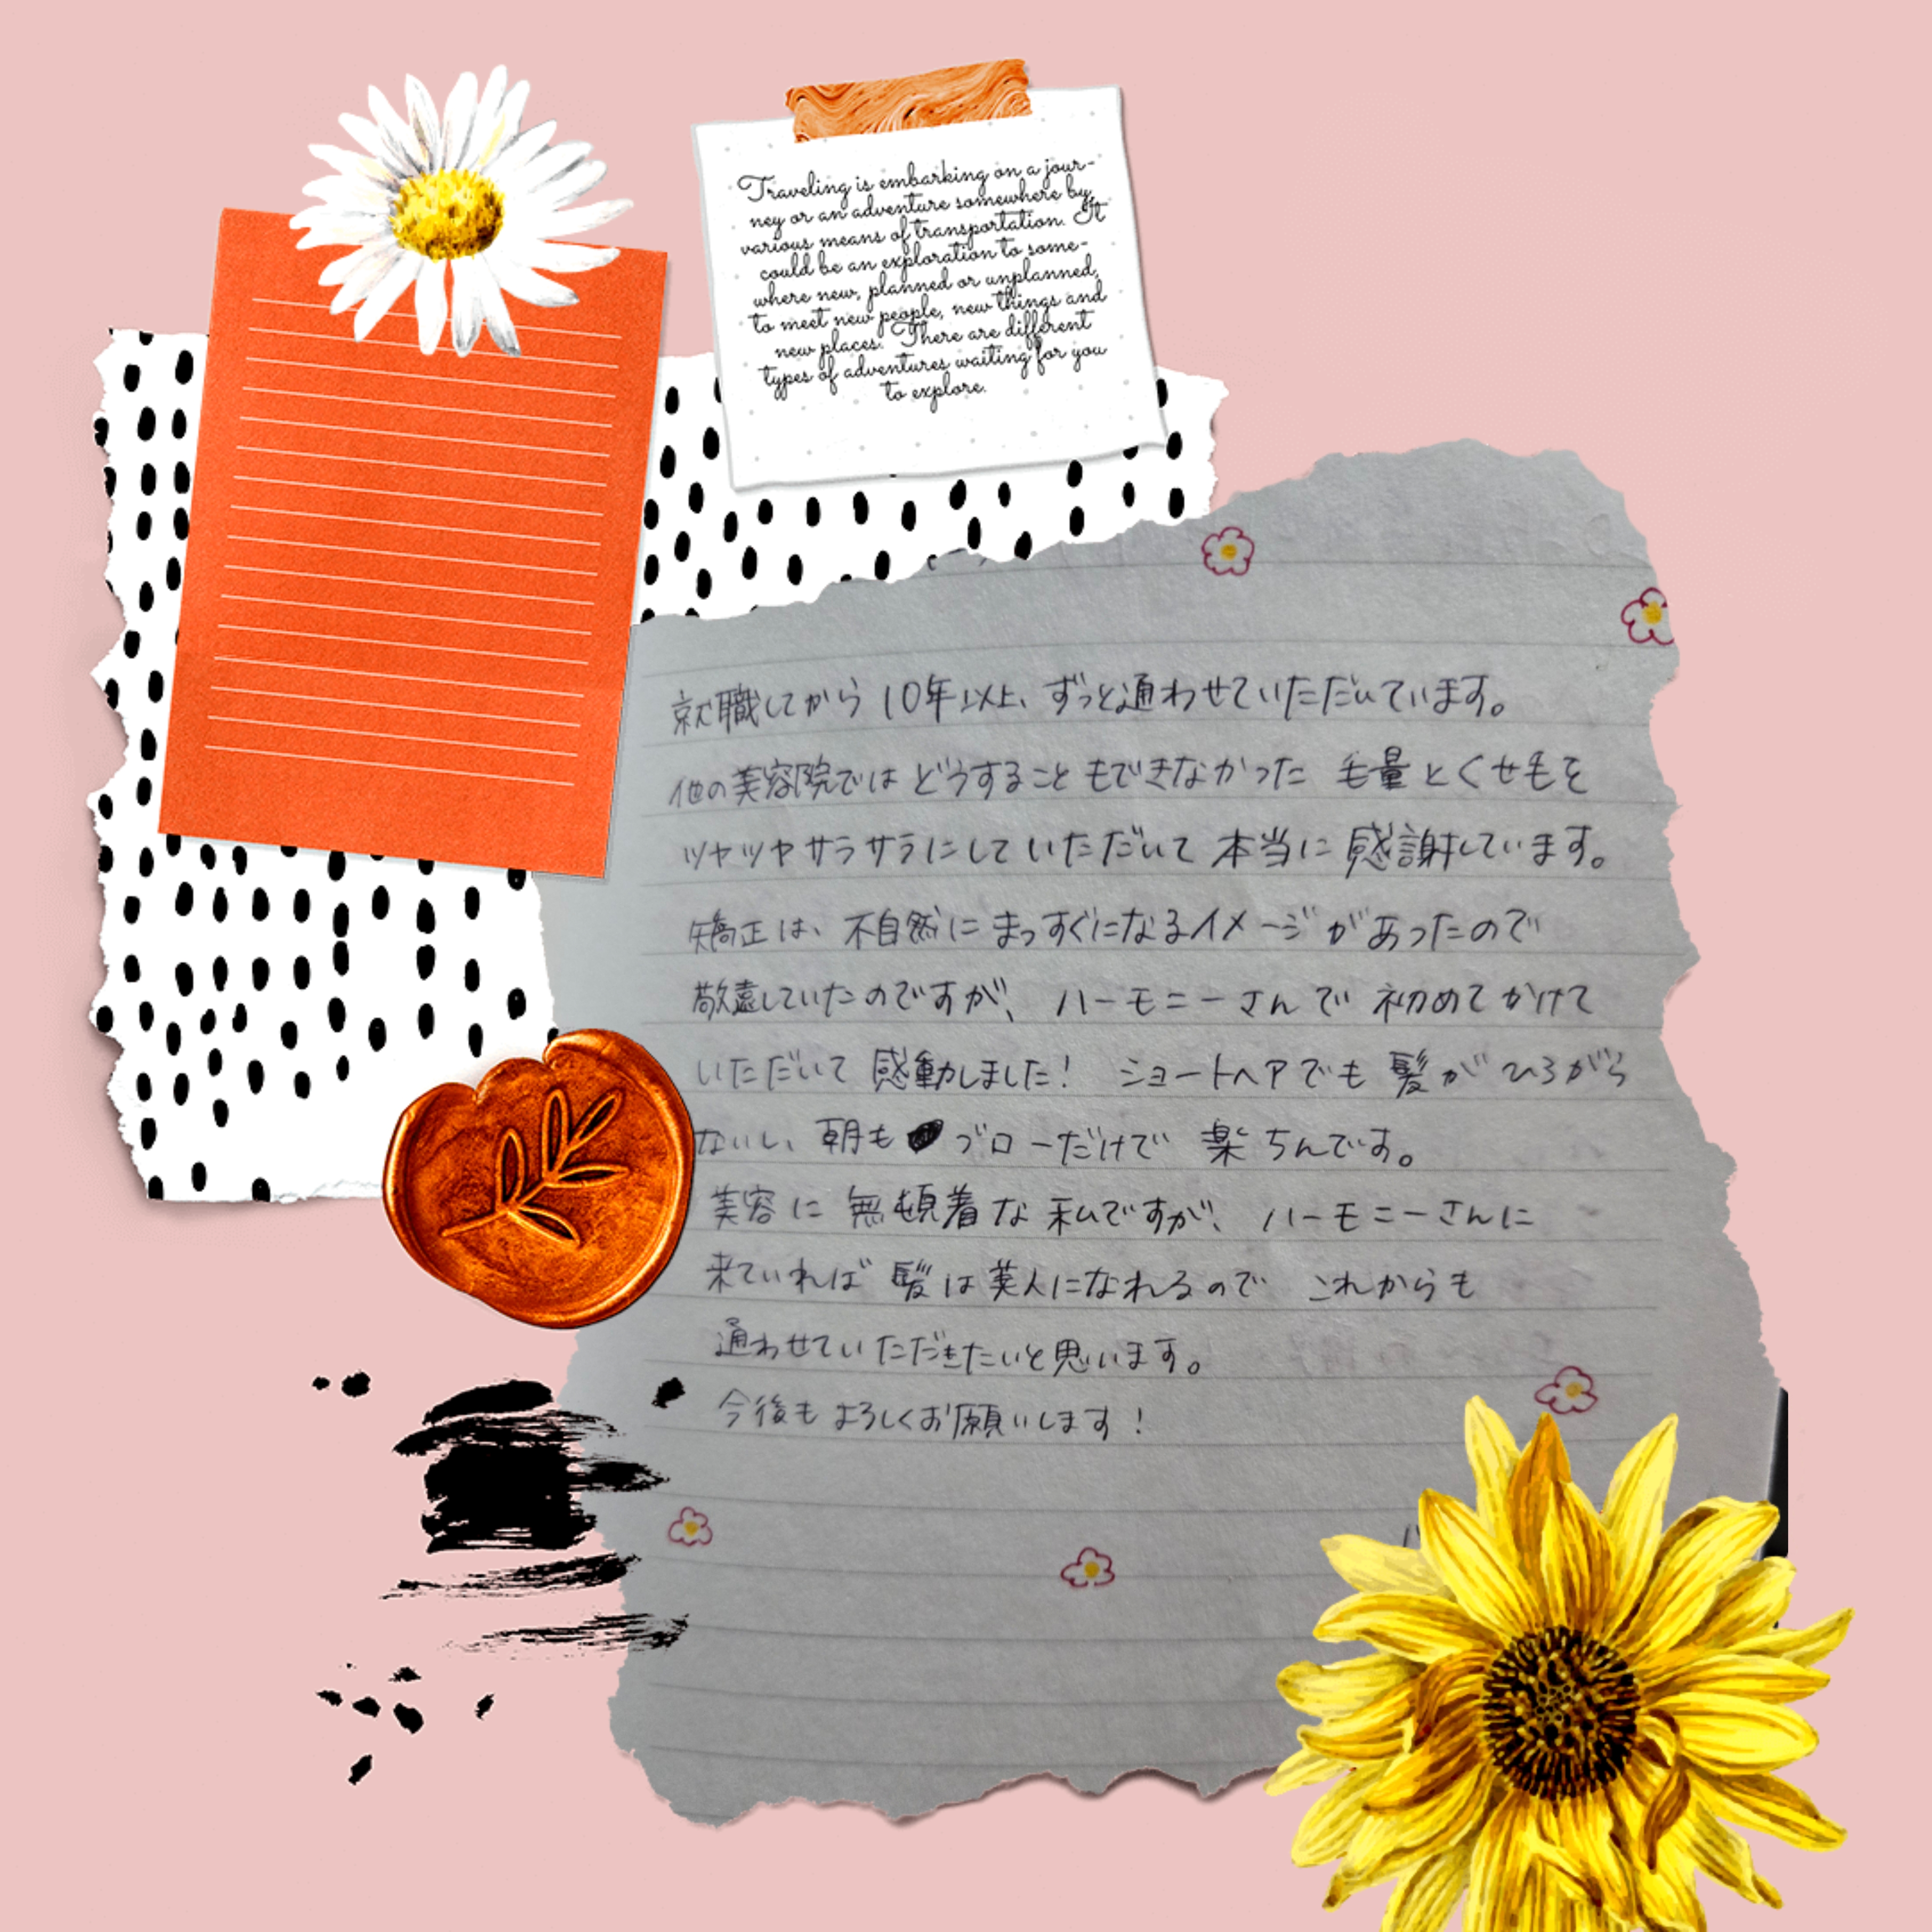 Traveling is embarking on a jour-
ney or an adventure somewhere by
various means of transportation. It
could be an exploration to some-
where new, planned or unplanned,
to meet new people, new things and
new places. There are different
types of adventures waiting for you
to explore.
就職してから10年以上、ずっと通わせていただいています。
他の美容院ではどうすることもできなかった 毛量とくせ毛を
ツヤツヤサラサラにしていただいて本当に感謝しています。
矯正は、不自然にまっすぐになるイメージがあったので
敬遠していたのですが、ハーモニーさんで初めてかけて
いただいて感動しました! ショートヘアでも髪がひろがら
ないし、朝もブローだけで楽ちんです。
美容に無頓着な私ですが、ハーモニーさんに
来ていれば髪は美人になれるので これからも
通わせていただきたいと思います。
今後もよろしくお願いします!